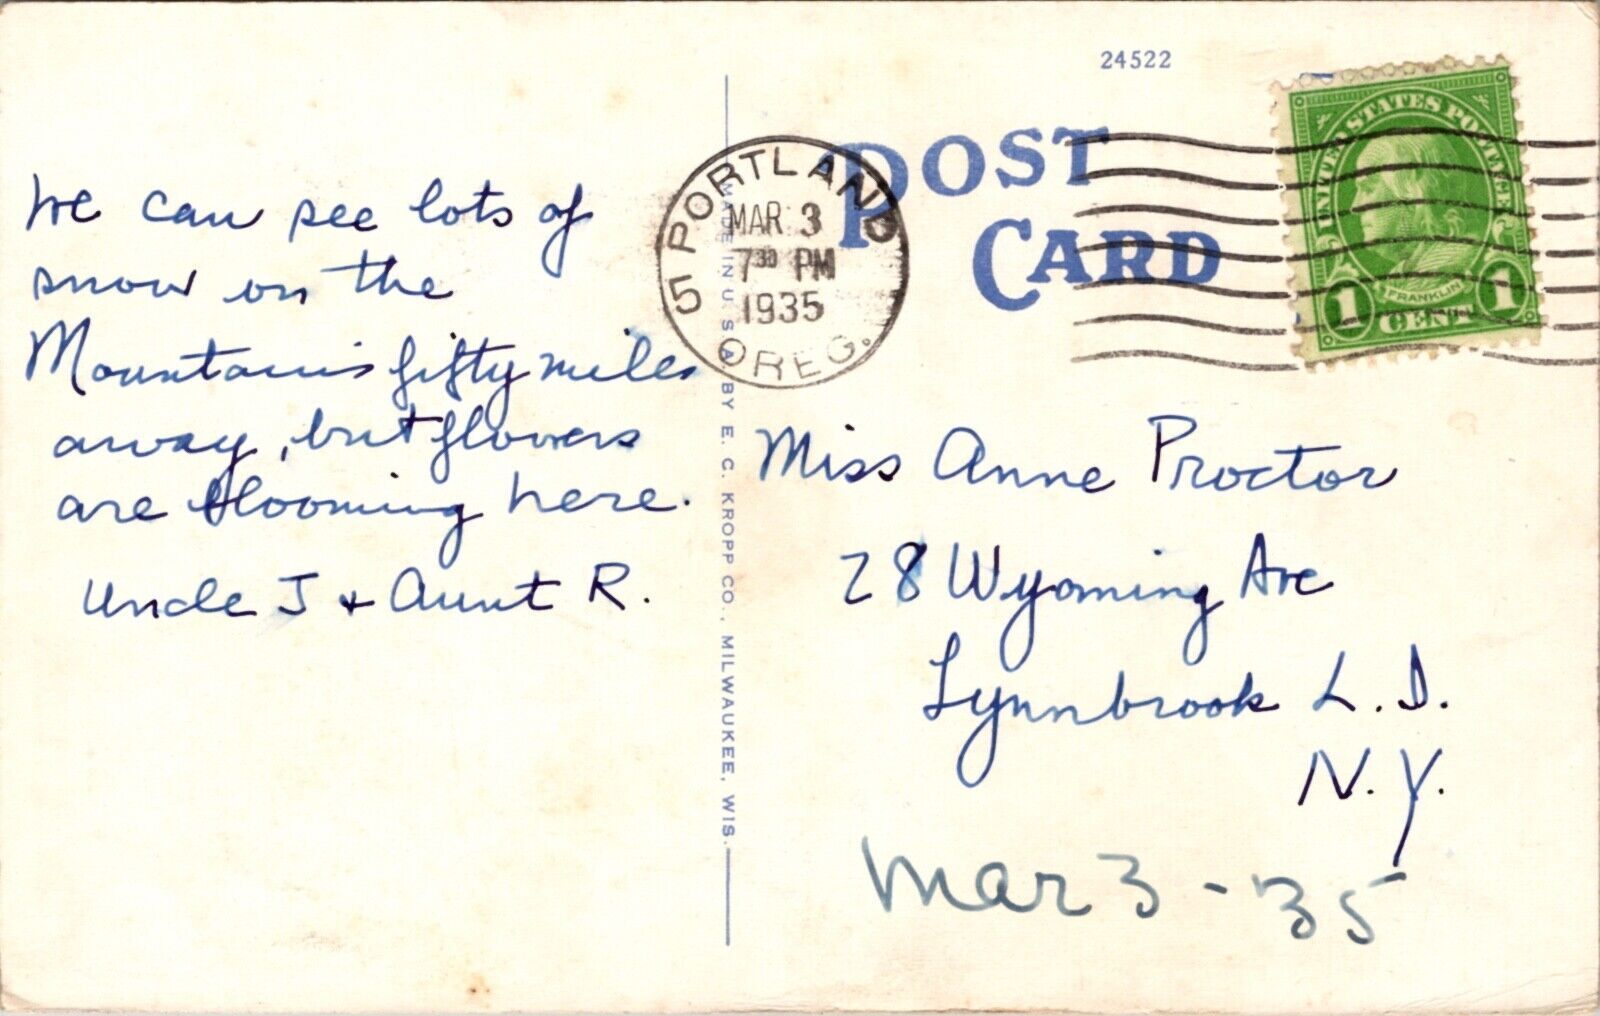 We can see lots of
snow on the
Mountains fifty miles
away, but flowers
are blooming here.
Uncle J & Aunt R.
MADE IN U. S. A. BY E. C. KROPP CO., MILWAUKEE, WIS.
24522
POST
CARD
5 PORTLAND
MAR 3
7 30 PM
1935
OREG.
UNITED STATES POSTAGE
FRANKLIN
1 CENT 1
Miss Anne Proctor
28 Wyoming Ave
Lynnbrook L. I.
N. Y.
Mar 3 - 35